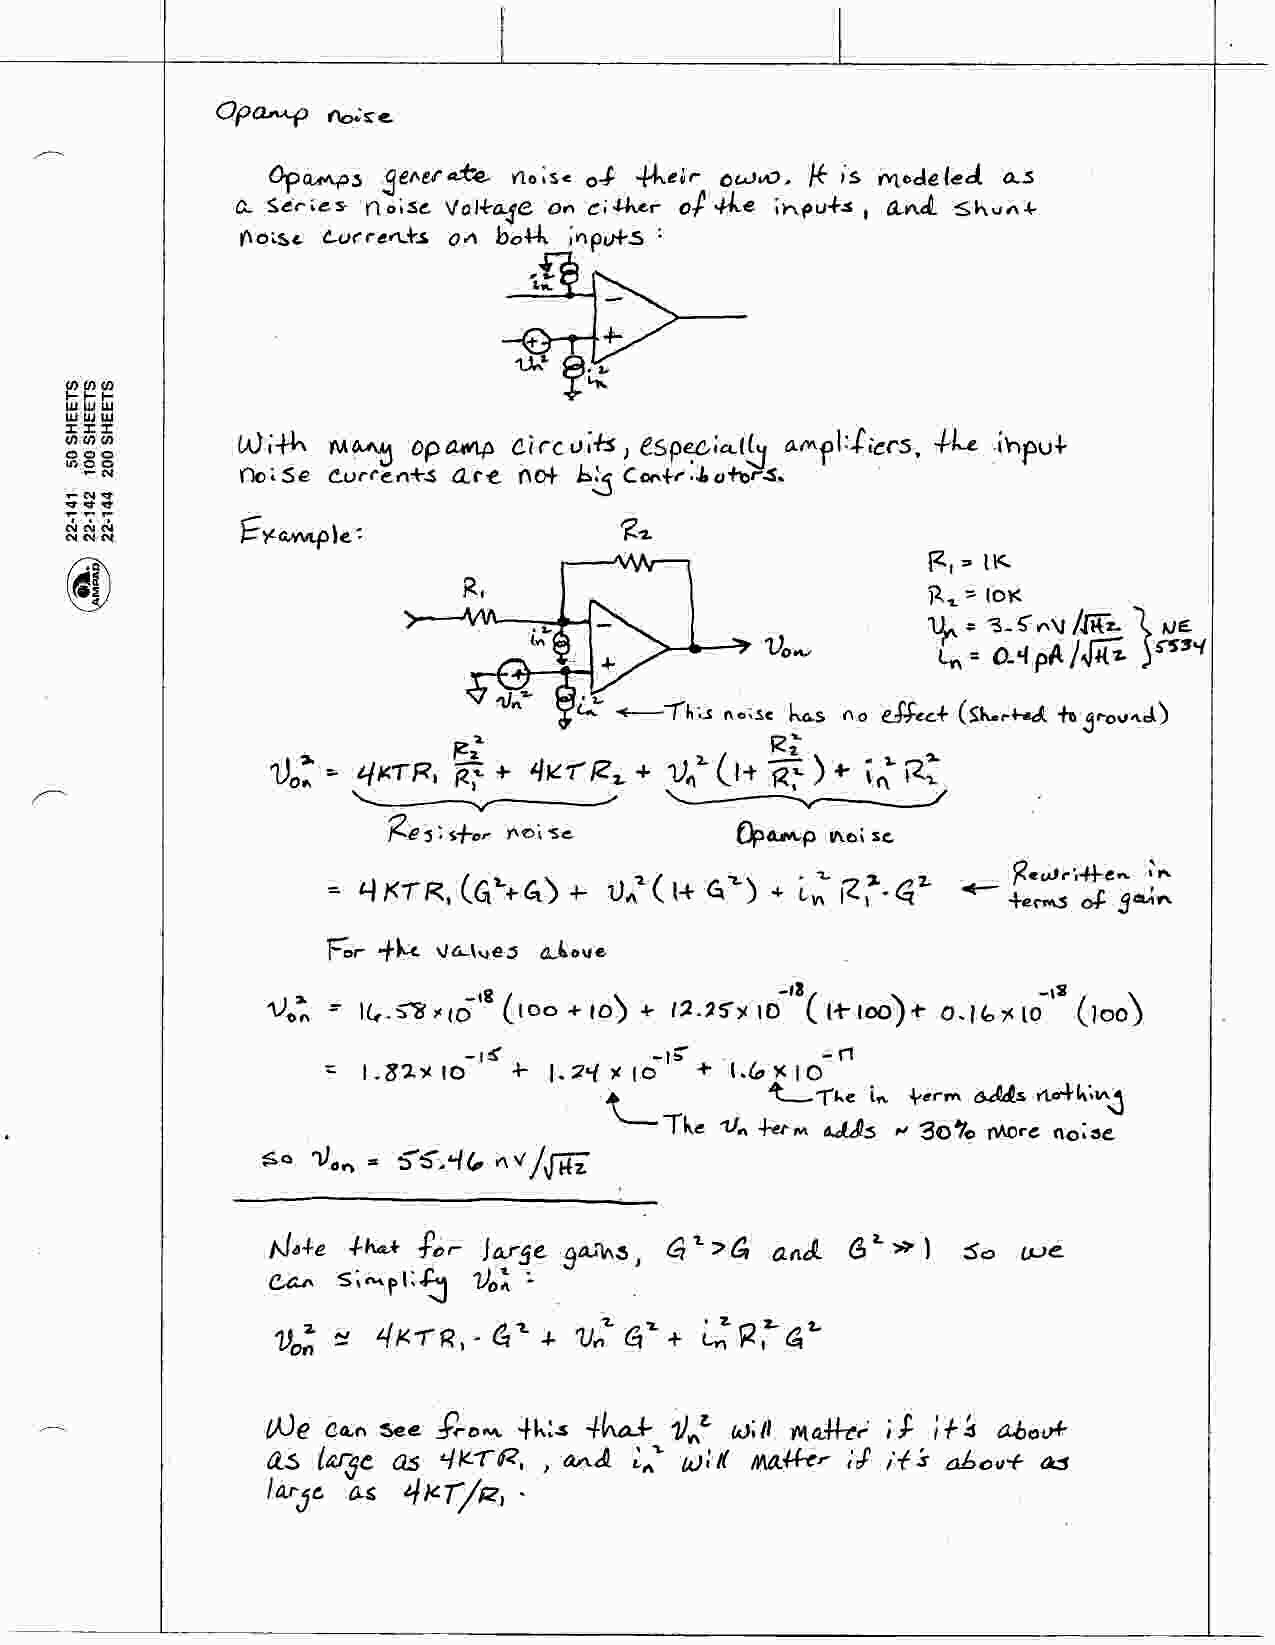 Opamp noise
Opamps generate noise of their own. It is modeled as
a series noise voltage on either of the inputs, and shunt
noise currents on both inputs:
in²
−
+
vn²
in²
50 SHEETS
100 SHEETS
200 SHEETS
22-141
22-142
22-144
AMPAD
With many opamp circuits, especially amplifiers, the input
noise currents are not big contributors.
Example:
R₂
R₁
in²
−
+
von
vn²
in² ← This noise has no effect (shorted to ground)
R₁ = 1K
R₂ = 10K
vn = 3.5 nV/√Hz } NE
in = 0.4 pA/√Hz } 5534
von² = 4KTR₁ R₂²/R₁² + 4KTR₂ + vn²(1+ R₂²/R₁²) + in² R₂²
Resistor noise Opamp noise
= 4KTR₁(G²+G) + vn²(1+G²) + in² R₁²·G² ← Rewritten in
terms of gain
For the values above
von² = 16.58×10⁻¹⁸(100+10) + 12.25×10⁻¹⁸(1+100) + 0.16×10⁻¹⁸(100)
= 1.82×10⁻¹⁵ + 1.24×10⁻¹⁵ + 1.6×10⁻¹⁷
The in term adds nothing
The vn term adds ~ 30% more noise
so von = 55.46 nV/√Hz
Note that for large gains, G²>G and G²≫1 so we
can simplify von²:
von² ≃ 4KTR₁·G² + vn² G² + in² R₁² G²
We can see from this that vn² will matter if it's about
as large as 4KTR₁, and in² will matter if it's about as
large as 4KT/R₁.